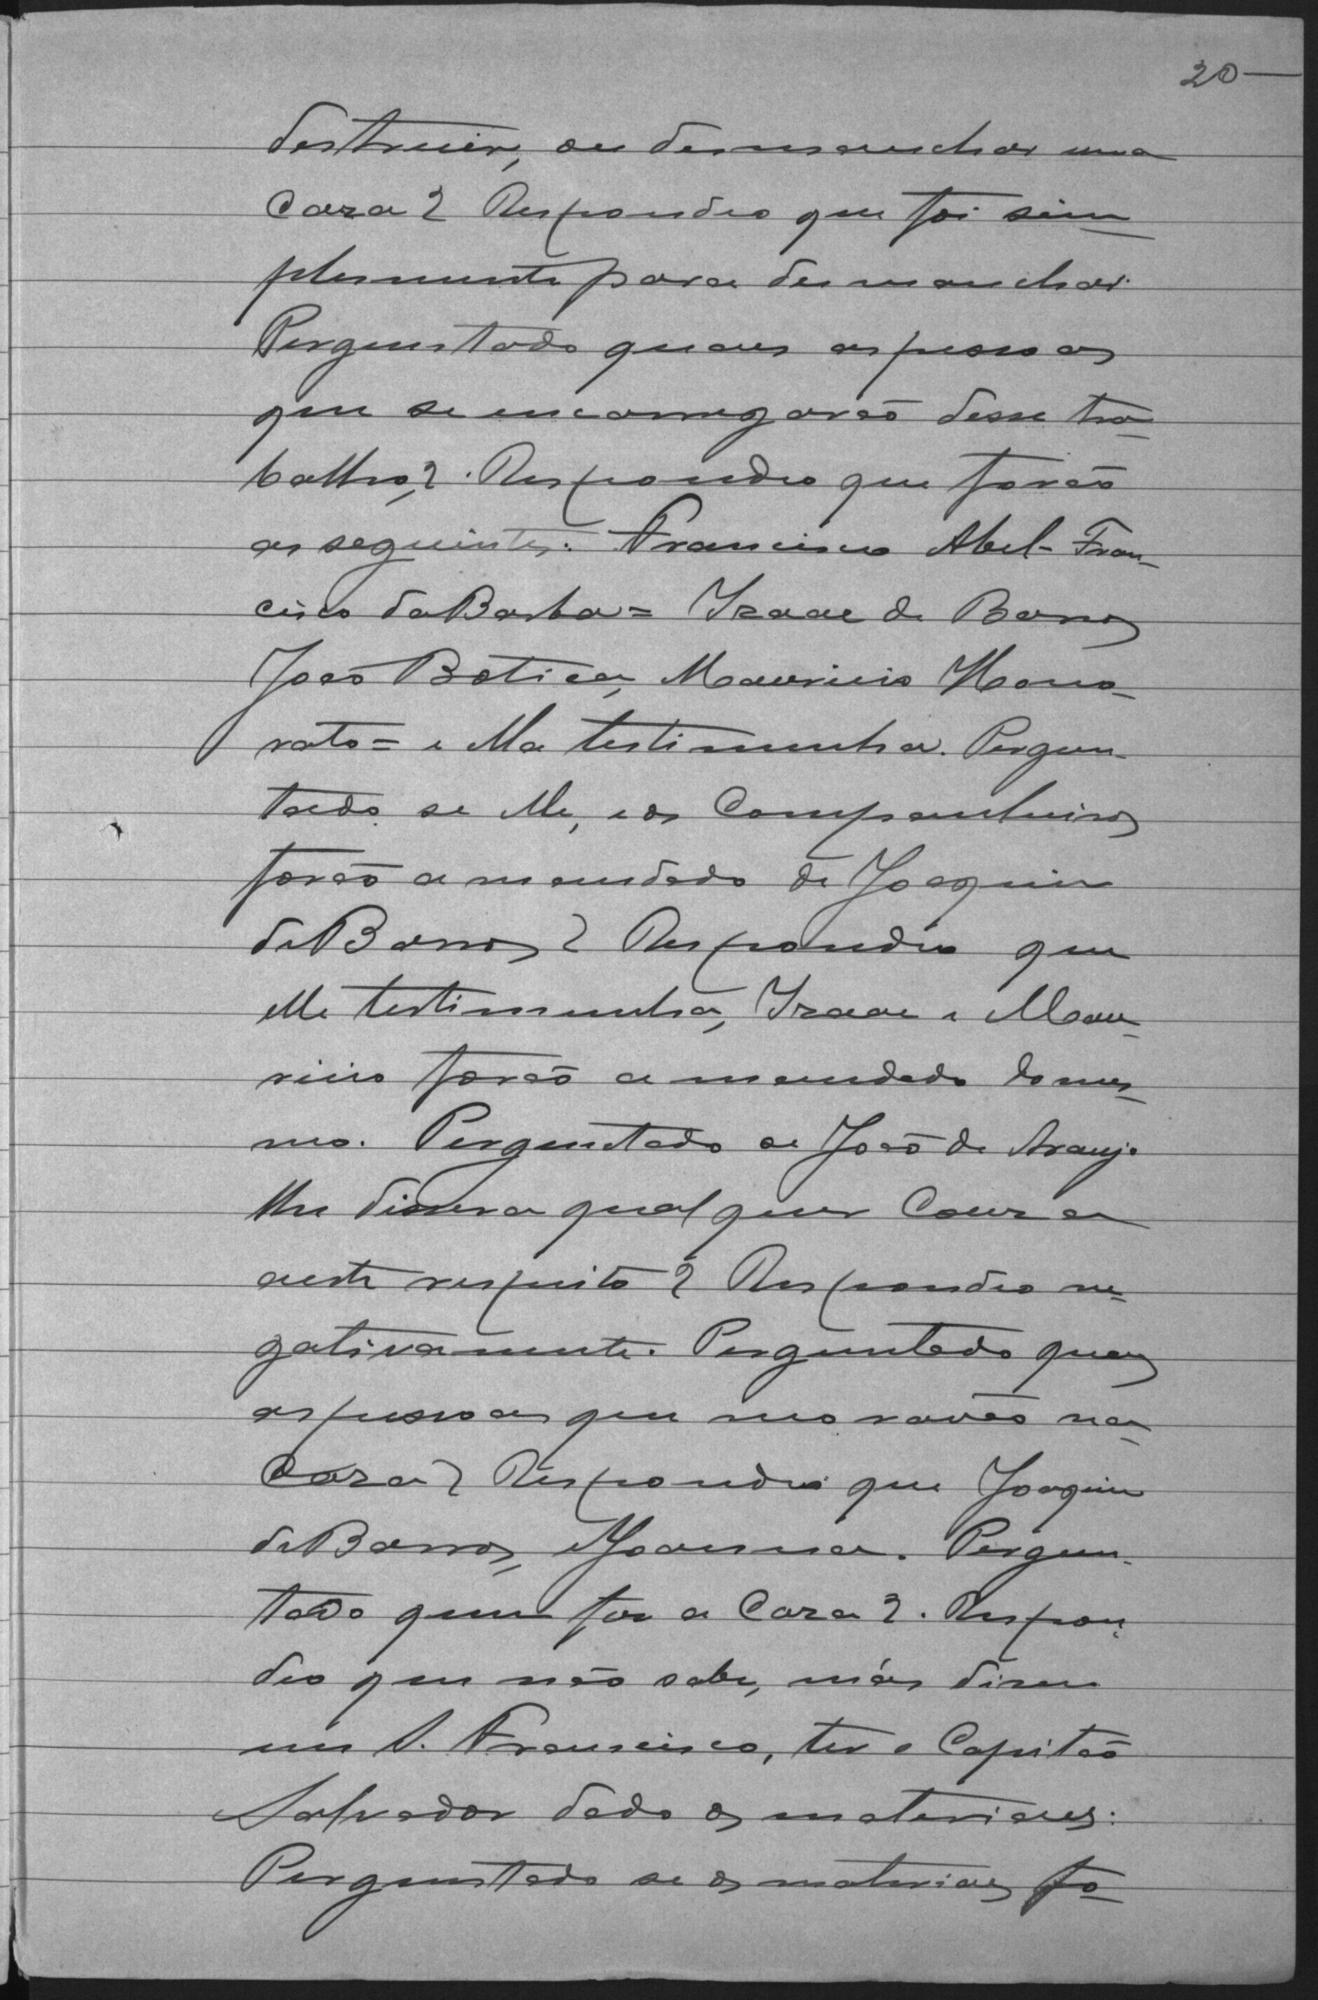 20
destruir, ou desmanchar uma
Caza? Respondeo que foi sim-
plesmente para desmanchar.
Perguntado quaes as pessoas
que se encarregarão desse tra-
balho,? Respondeo que forão
as seguintes: Francisco Abel - Fran-
cisco da Barba = Izaac de Barros
João Botica, Mauricio Hono-
rato = e elle testimunha. Pergun-
tado se elle, e os Companheiros
forão a mandado de Joaquim
de Barros? Respondeo que
elle testimunha, Izaac e Mau-
ricio forão a mandado do mes-
mo. Perguntado se João de Araujo
lhe dissera qual quer Couza
a este respeito? Respondeo ne-
gativamente. Perguntado quaes
as pessoas que moravão na
Caza? Respondeo que Joaquim
de Barros, e Joanna. Pergun-
tado quem fez a Caza?. Respon-
deo que não sabe, más disem
em S. Francisco, ter o Capitão
Salvador dado os materiaes:
Perguntado se os materiaes fo-